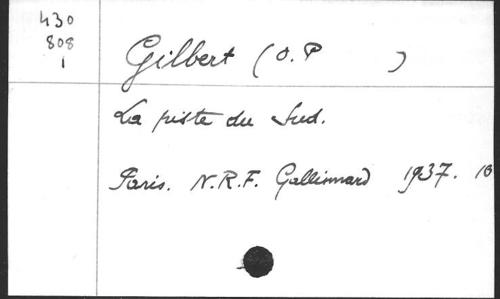 430
808
1
Gilbert (O. P )
La piste du Sud.
Paris. N.R.F. Gallimard 1937. 16